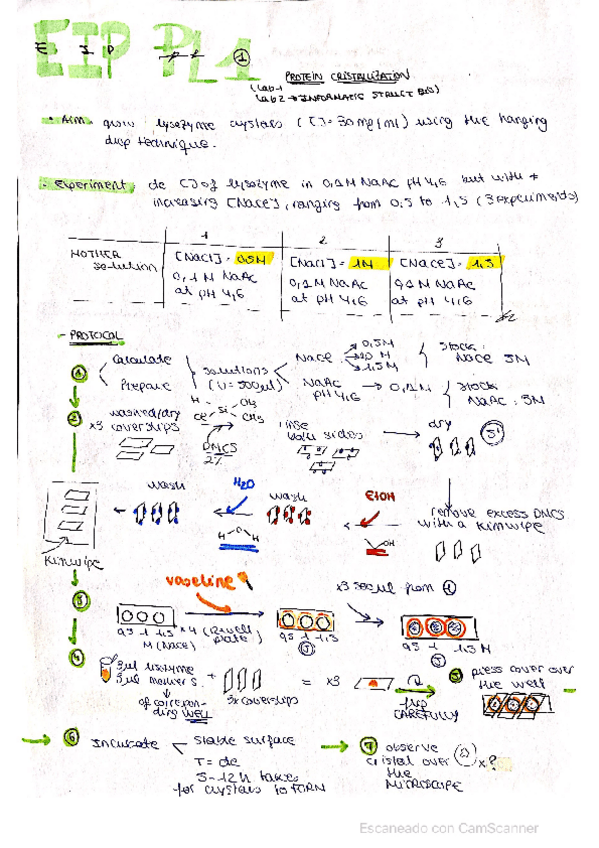 EIP PL1 ①
PROTEIN CRISTALLIZATION
(Lab 1
Lab 2 → INFORMATIC STRUCT BIO)
• Aim. grow lysozyme crystals ([ ]=30mg/ml) using the hanging
drop technique.
• Experiment, de [ ] of lysozyme in 0,1M NaAc pH 4,6 but with ≠
increasing [NaCl], ranging from 0.5 to 1,5 (3 experiments)
1 2 3
MOTHER
solution
[NaCl]= 0.5M
0,1 M NaAc
at pH 4,6
[NaCl]= 1M
0,1 M NaAc
at pH 4,6
[NaCl]= 1.5
0,1 M NaAc
at pH 4,6
- PROTOCOL
① Calculate
Prepare
solutions
(V=500µl)
NaCl → 0,5M
→ 1,0 M
→ 1,5M
Stock:
NaCl 5M
NaAc → 0,1M
pH 4,6
Stock
NaAc: 3M
② x3 washed/dry
coverslips
H CH3
Cl Si CH3
DMCS
2%
rinse
both sides
dry
5'
remove excess DMCS
with a Kimwipe
EtOH
OH
wash
H2O
H O H
wash
Kimwipe
③
0,5 1 1,5
M (NaCl)
x 4 (12 well
plate)
vaseline
0,5 1 1,5
x3 500µl from ①
0,5 1 1,5 M
④ 3µl lysozyme
3µl mother s.
of correspon-
ding WELL
+
3x coverslips
= x3
flip
CAREFULLY
⑤ press cover over
the well
⑥ Incubate
Stable surface
T= de
5-12h takes
for crystals to FORM
⑦ observe
cristal over
the
MICROSCOPE
x?
Escaneado con CamScanner